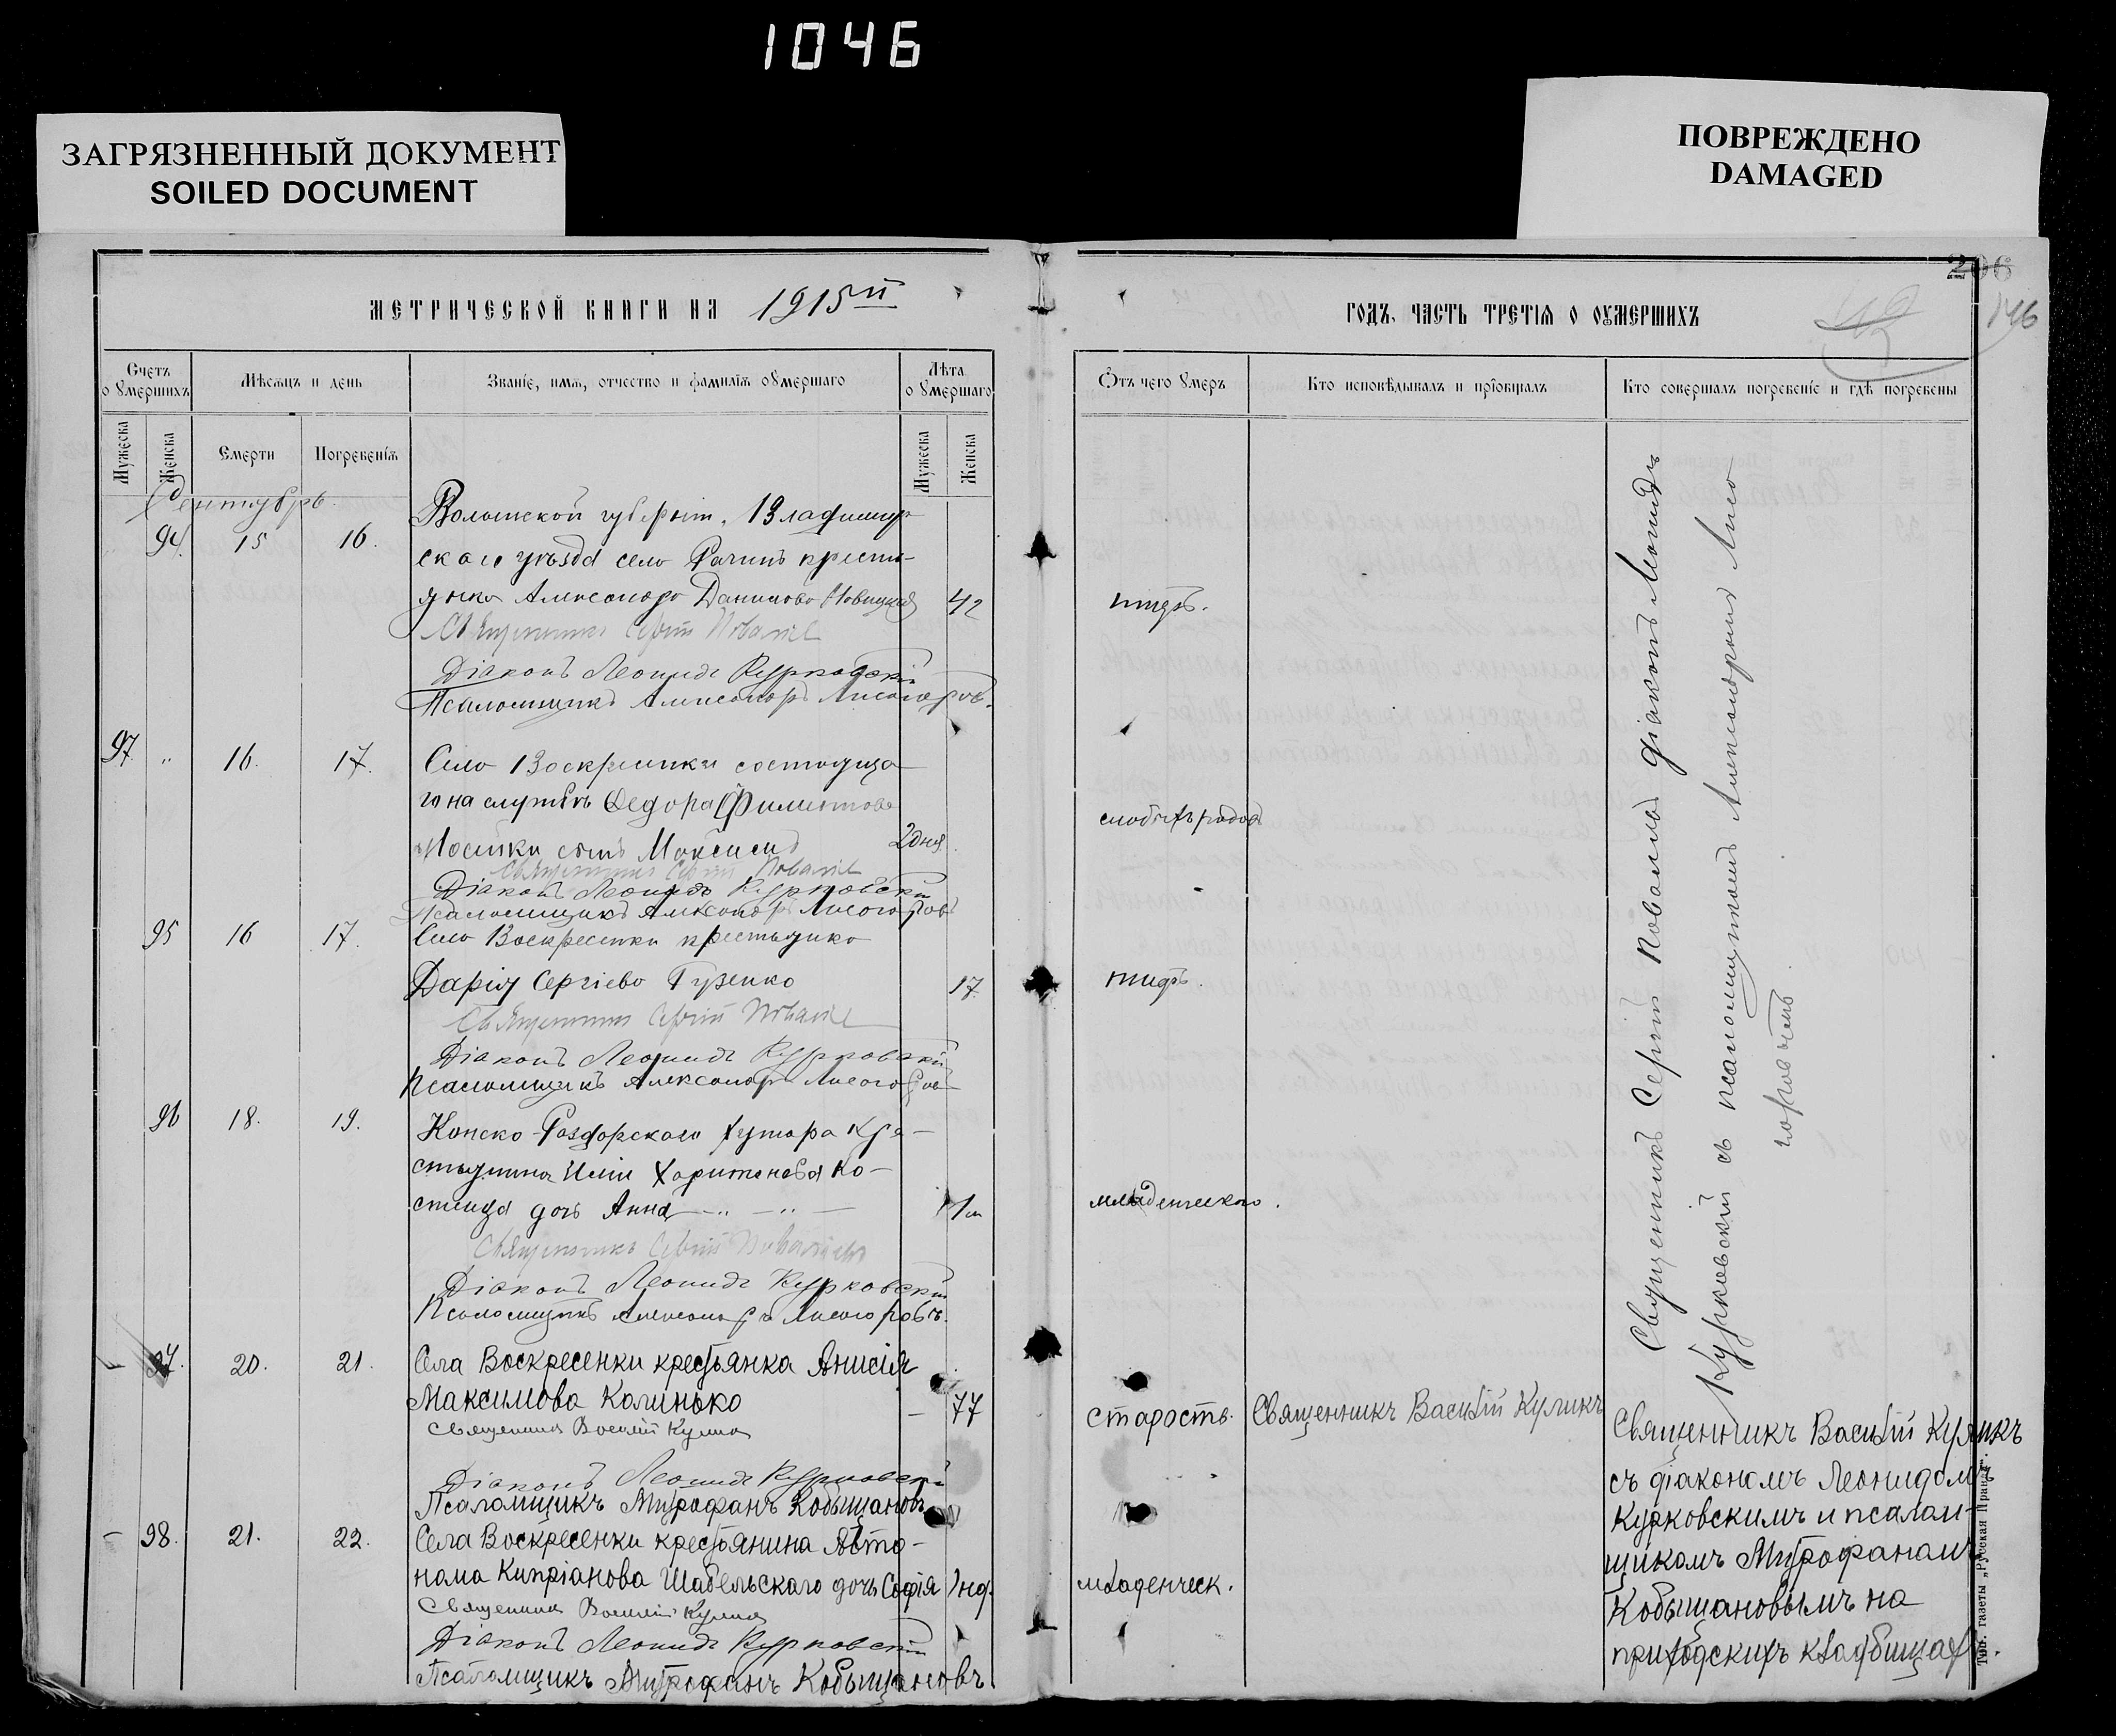 1046
ЗАГРЯЗНЕННЫЙ ДОКУМЕНТ
SOILED DOCUMENT
ПОВРЕЖДЕНО
DAMAGED
206
146
МЕТРИЧЕСКОЙ КНИГИ НА 1915й
ГОДЪ, ЧАСТЬ ТРЕТІЯ О ОУМЕРШИХЪ
Счетъ о умершихъ
Мѣсяцъ и день
Званіе, имя, отчество и фамилія оумершаго
Лѣта оумершаго
Отъ чего умеръ
Кто исповѣдывалъ и пріобщалъ
Кто совершалъ погребеніе и гдѣ погребены
Мужеска
Женска
Смерти
Погребенія
Мужеска
Женска
Сентябрь
94. 15 16.
Волынской губерніи, Владимір-
скаго уѣзда село Рачинъ кресть-
янка Александра Данилова Новицкая 42 тифъ.
Священникъ Сергій
Діаконъ Леонидъ Курковскій
Псаломщикъ Александръ Лисогоровъ.
97. " 16. 17.
Село Воскресенки состояща-
го на службѣ Федора Филиппова
сынъ Максимъ 2 дня
Священникъ Сергій
Діаконъ Леонидъ Курковскій
Псаломщикъ Александръ Лисогоровъ
95 16 17.
Село Воскресенки крестьянка
Дарія Сергіева Гузенко 17. тифъ.
Священникъ Сергій
Діаконъ Леонидъ Курковскій
Псаломщикъ Александръ Лисогоровъ
96 18. 19.
Конско-Раздорскаго хутора кре-
стьянина Иліи Харитонова Ко-
дочь Анна 1 младенческаго.
Священникъ Сергій
Діаконъ Леонидъ Курковскій
Псаломщикъ Александръ Лисогоровъ.
Священникъ Сергій діаконъ Леонидъ
Курковскій съ псаломщикомъ Александромъ Лисо-
горовымъ
97. 20. 21.
Села Воскресенки крестьянка Анисія
Максимова Калинько – 77 старость. Священникъ Василій Куликъ
Священникъ Василій Куликъ
Діаконъ Леонидъ Курковскій
Псаломщикъ Митрофанъ Кобыщановъ
– 98. 21. 22.
Села Воскресенки крестьянина Авто-
нома Кипріанова Шабельскаго дочь Софія нед. младенческ.
Священникъ Василій Куликъ
Діаконъ Леонидъ Курковскій
Псаломщикъ Митрофанъ Кобыщановъ
Священникъ Василій Куликъ
съ діакономъ Леонидомъ
Курковскимъ и псалом-
щикомъ Митрофаномъ
Кобыщановымъ на
приходскихъ кладбищахъ.
Тип. газеты „Русская Правда".